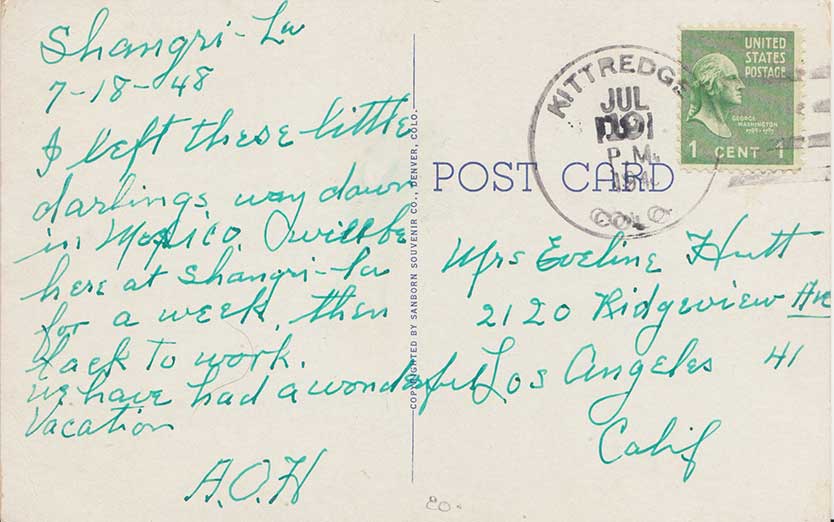 Shangri-La
7-18-48
I left these little
darlings way down
in Mexico. I will be
here at Shangri-La
for a week, then
back to work.
We have had a wonderful
Vacation
A.O.H
COPYRIGHTED BY SANBORN SOUVENIR CO., DENVER, COLO.
POST CARD
KITTREDGE
JUL
19
P.M.
194
COLO
UNITED
STATES
POSTAGE
GEORGE
WASHINGTON
1 CENT 1
Mrs Eveline Hutt
2120 Ridgeview Ave
Los Angeles 41
Calif
20.